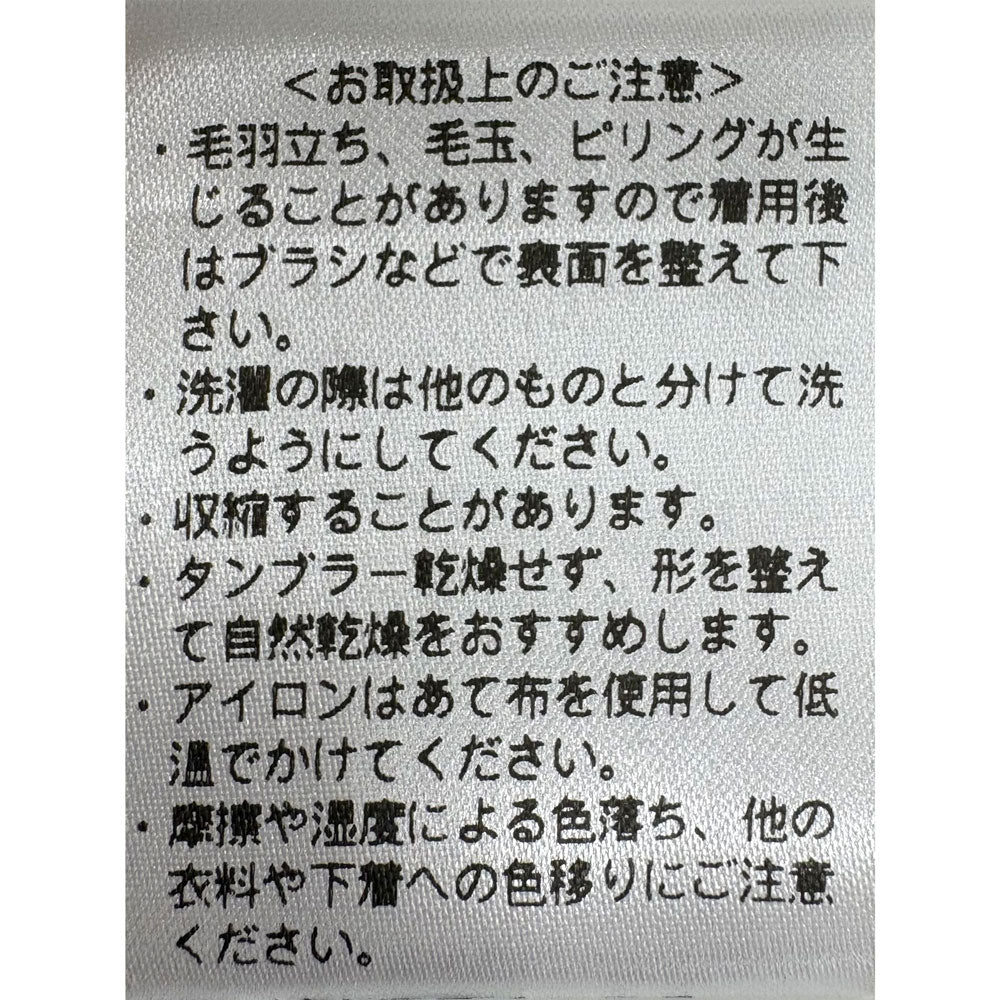 ＜お取扱上のご注意＞
・毛羽立ち、毛玉、ピリングが生
じることがありますので着用後
はブラシなどで表面を整えて下
さい。
・洗濯の際は他のものと分けて洗
うようにしてください。
・収縮することがあります。
・タンブラー乾燥せず、形を整え
て自然乾燥をおすすめします。
・アイロンはあて布を使用して低
温でかけてください。
・摩擦や湿度による色落ち、他の
衣料や下着への色移りにご注意
ください。